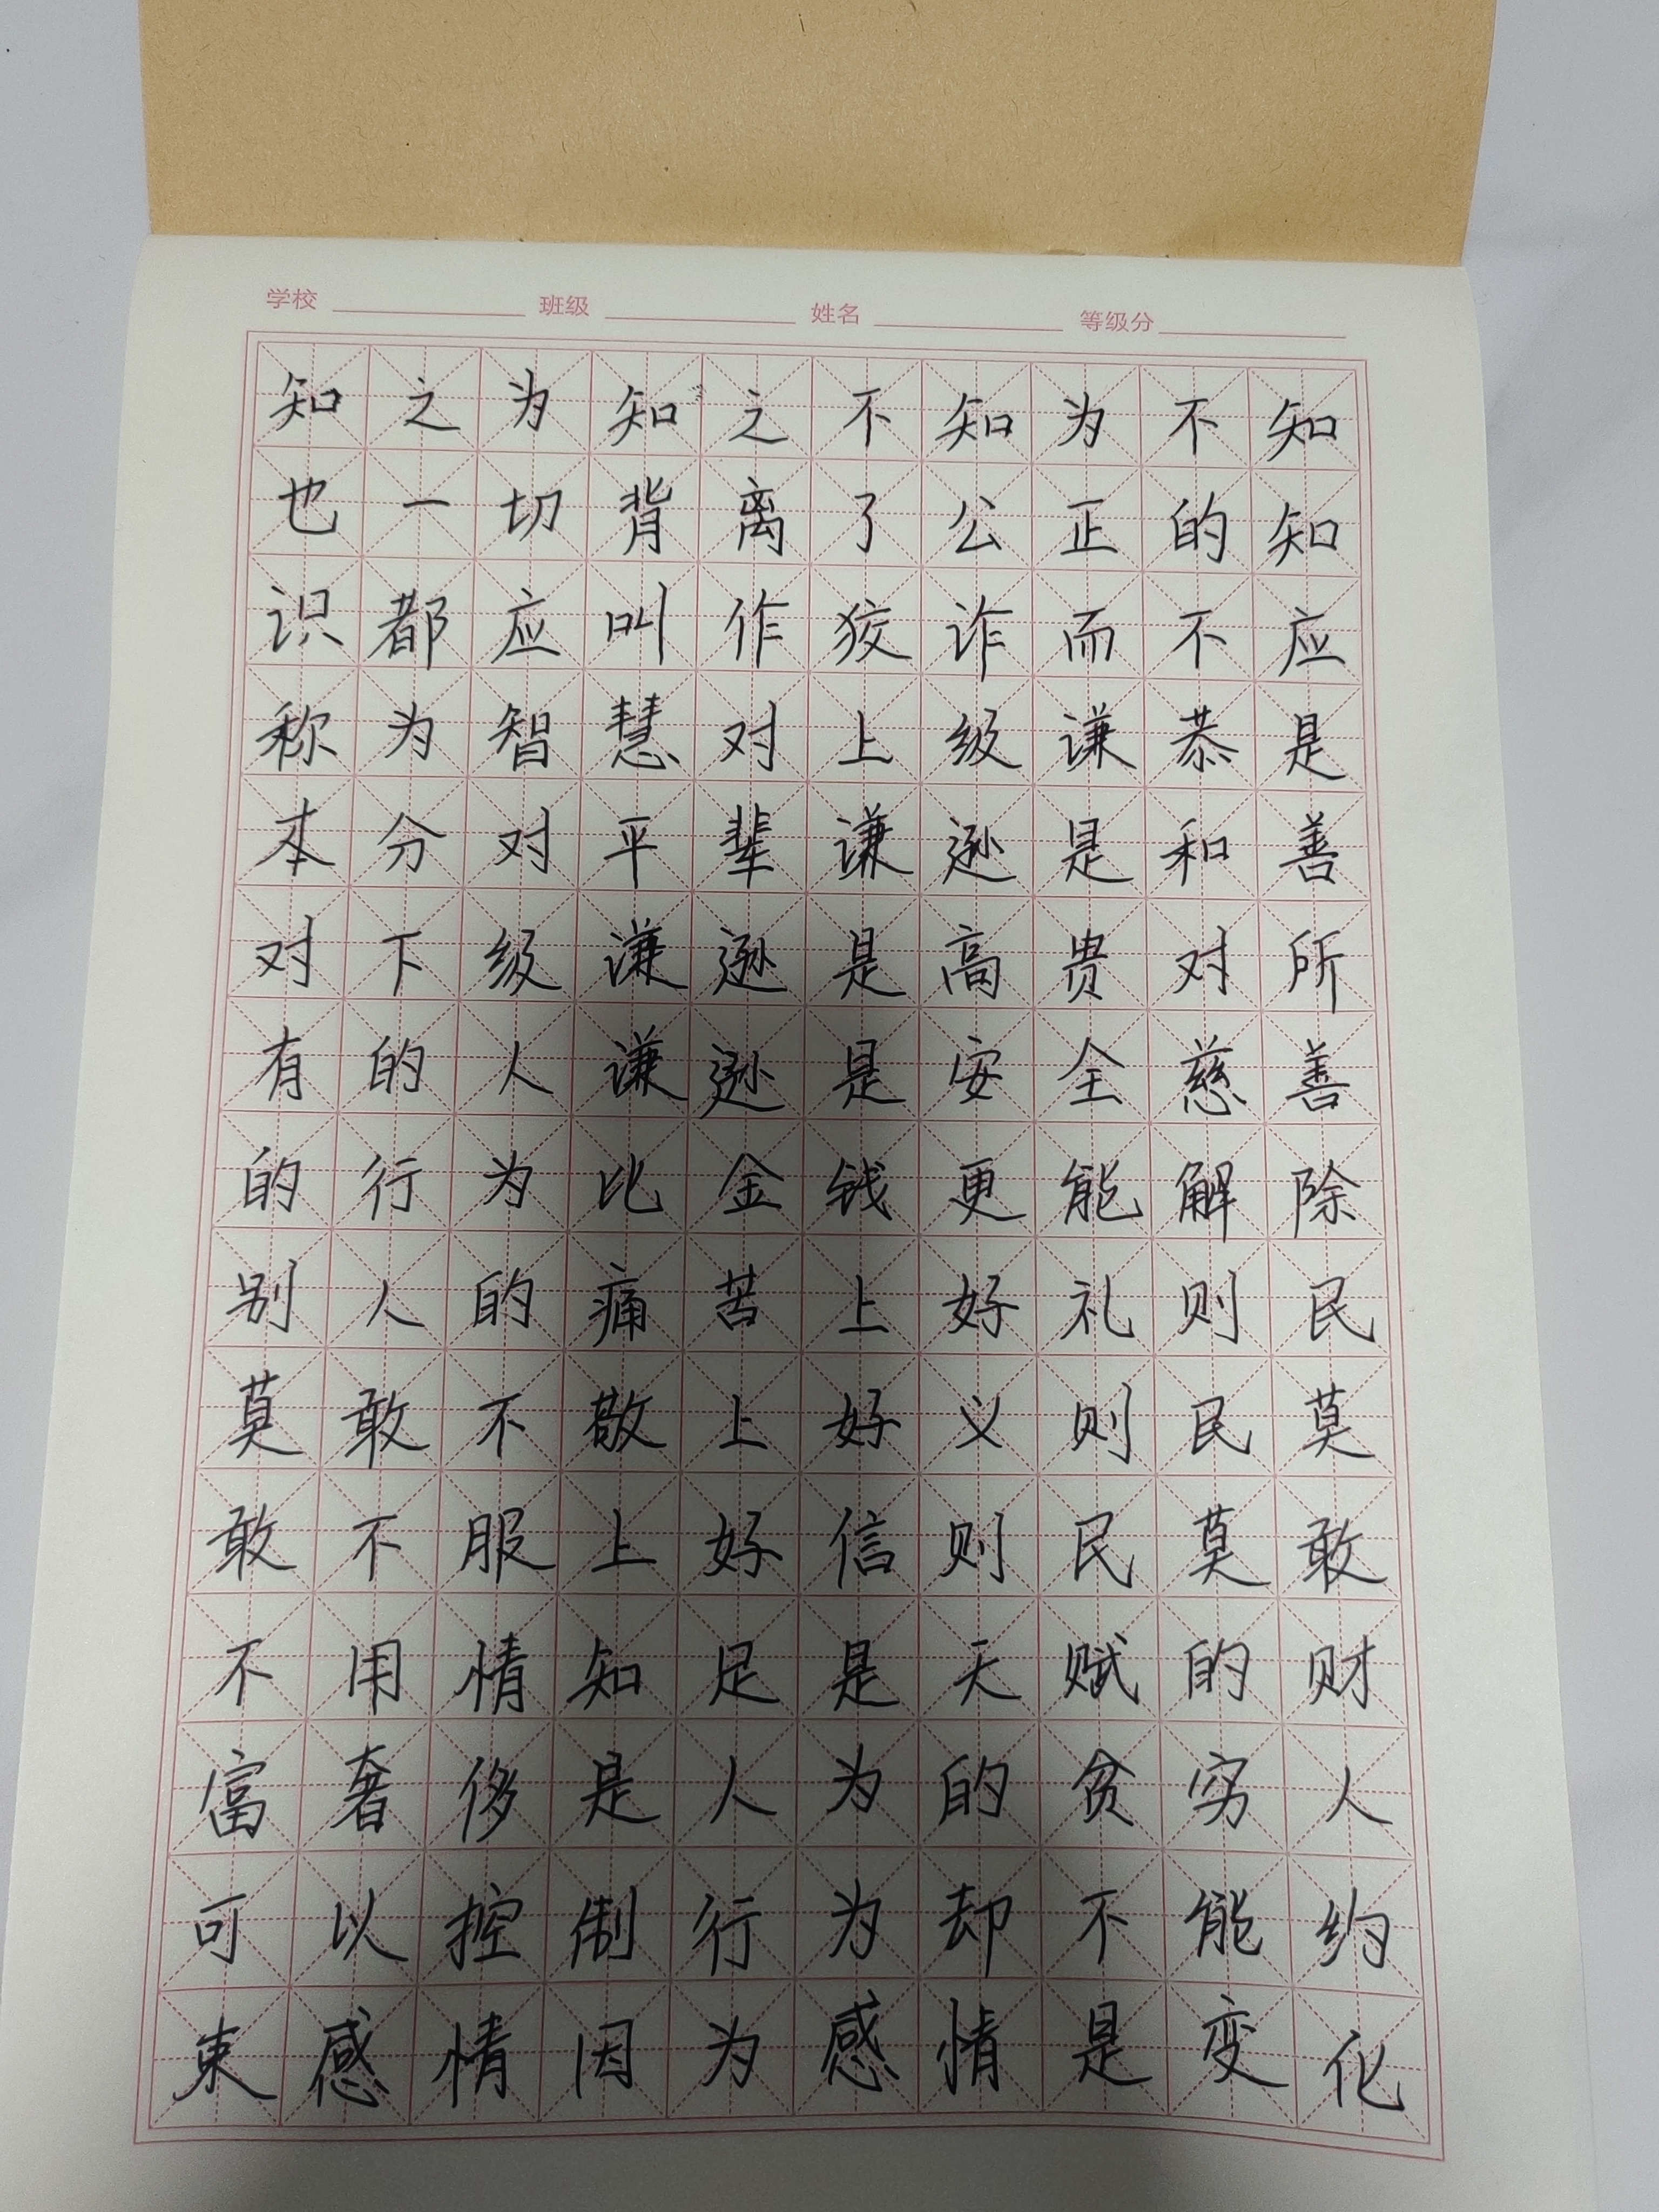 学校 班级 姓名 等级分
知之为知之不知为不知
也一切背离了公正的知
识都应叫作狡诈而不应
称为智慧对上级谦恭是
本分对平辈谦逊是和善
对下级谦逊是高贵对所
有的人谦逊是安全慈善
的行为比金钱更能解除
别人的痛苦上好礼则民
莫敢不敬上好义则民莫
敢不服上好信则民莫敢
不用情知足是天赋的财
富奢侈是人为的贫穷人
可以控制行为却不能约
束感情因为感情是变化